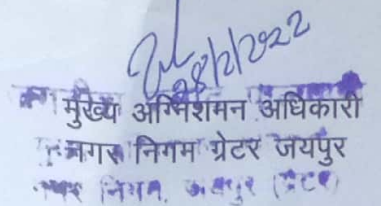 28/2/2022
मुख्य अग्निशमन अधिकारी
नगर निगम ग्रेटर जयपुर
निगम, जयपुर (ग्रेटर)